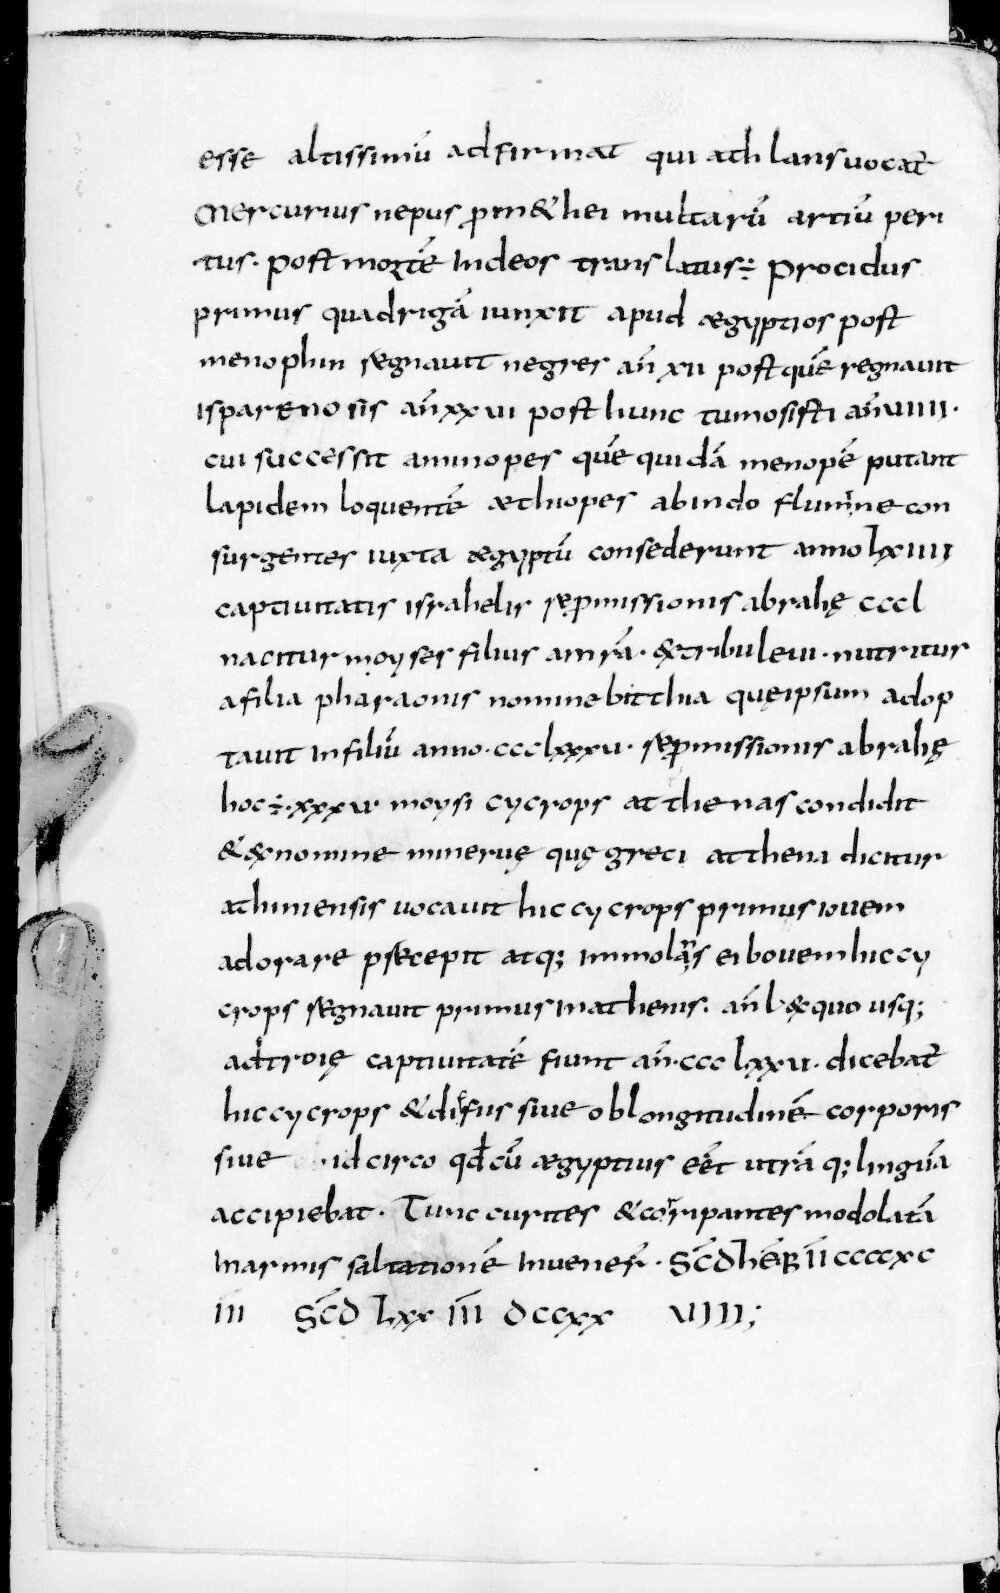 esse altissimū adfirmat qui athlans uocat̄
Mercurius nepus ꝓm&hei multarū artiū peri
tus. post mortē in deos translatus; Procidus
primus quadrigā iunxit apud ægyptios post
menophin regnauit negres an̄ xii post quē regnauit
isparenosis an̄ xxvi post hunc tumosisti an̄ viiii.
cui successit aminopes quē quidā menopē putant
lapidem loquentē æthiopes ab indo flumine con
surgentes iuxta ægyptū consederunt anno lxiiii
captiuitatis israhelis repromissionis abrahę cccl
nacitur moyses filius amrā. &tribu leui. nutritur
a filia pharaonis nomine bitthia quę ipsum adop
tauit in filiū anno. ccclxxxv. repromissionis abrahę
hoc ÷. xxxv moysi cycrops atthenas condidit
& ex nomine mineruę quę greci atthena dicitur
athiniensis uocauit hic cycrops primus iouem
adorare precepit atq; immolans ei bouem hic cy
crops regnauit primus in athenis. an̄ l. & quo usq;
ad troię captiuitatē fiunt an̄. ccc lxxv. dicebat̄
hic cycrops & difus siue ob longitudinē corporis
siue idcirco qd̄ cū ægyptius eēt utrā q; linguā
accipiebat. Tunc curites & corripantes modolatā
in armis saltationē inuener̄. Sc̄d hēƀR̄ īī ccccxc
iii Sc̄d lxx īīī dccxx viiii;